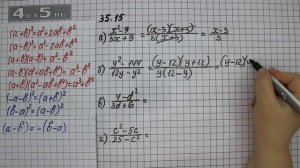 4.05
35.15
(a+b)²=a²+2ab+b²
(a-b)²=a²-2ab+b²
(a+b)(a-b)=a²-b²
(a+b)(a²-ab+b²)=a³+b³
(a-b)(a²+ab+b²)=a³-b³
(-a-b)²=(a+b)²
(b-a)²=(a-b)²
(a-b)=-(b-a)
а) x²-9 / 3x+9 = (x-3)(x+3) / 3(x+3) = x-3 / 3
б) y²-144 / 12y-y² = (y-12)(y+12) / y(12-y) = (y-12)(
в) 4-d² / 3d+6 =
г) c²-5c / 25-c² =